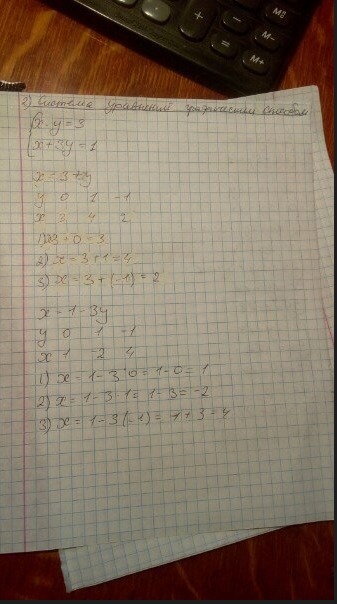 M≡
M-
M+
+
-
=
2) Система уравнений графическим способом
{x-y=3
{x+3y=1
x=3+y
y 0 1 -1
x 3 4 2
1) 3+0=3
2) x=3+1=4
3) x=3+(-1)=2
x=1-3y
y 0 1 -1
x 1 -2 4
1) x=1-3·0=1-0=1
2) x=1-3·1=1-3=-2
3) x=1-3(-1)=1+3=4